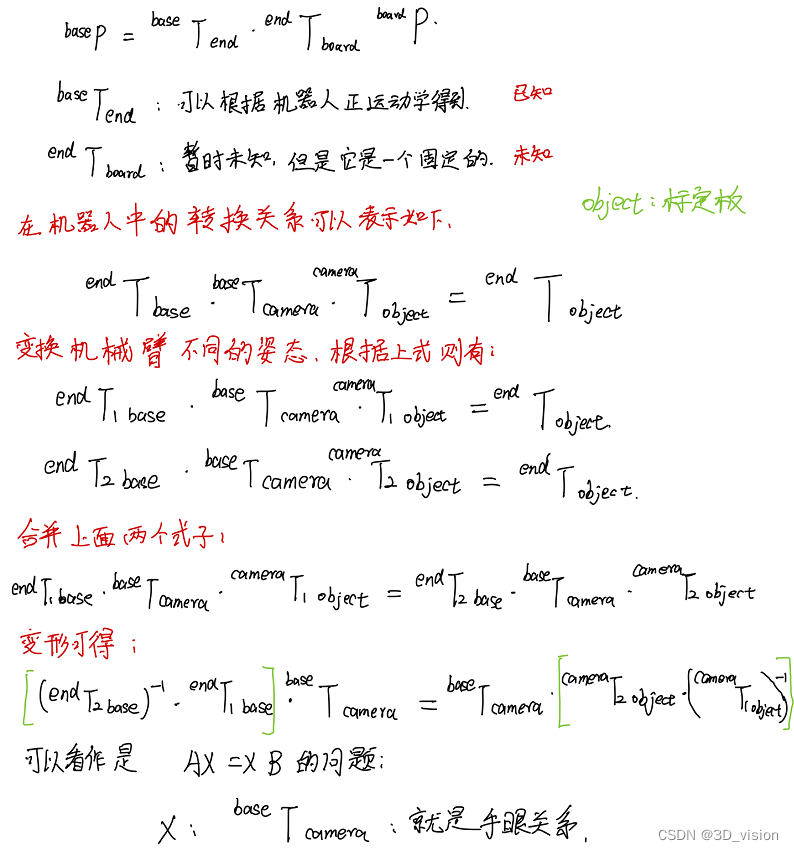 base P = base T end · end T board board P.
base T end : 可以根据机器人正运动学得到. 已知
end T board : 暂时未知, 但是它是一个固定的. 未知
object : 标定板
在机器人中的转换关系可以表示如下.
end T base · base T camera · camera T object = end T object
变换机械臂不同的姿态. 根据上式则有:
end T1 base · base T camera · camera T1 object = end T object.
end T2 base · base T camera · camera T2 object = end T object.
合并上面两个式子:
end T1 base · base T camera · camera T1 object = end T2 base · base T camera · camera T2 object
变形可得 ;
[(end T2 base)^-1 · end T1 base] · base T camera = base T camera · [camera T2 object · (camera T1 object)^-1]
可以看作是 AX = XB 的问题;
X : base T camera : 就是手眼关系.
CSDN @3D_vision